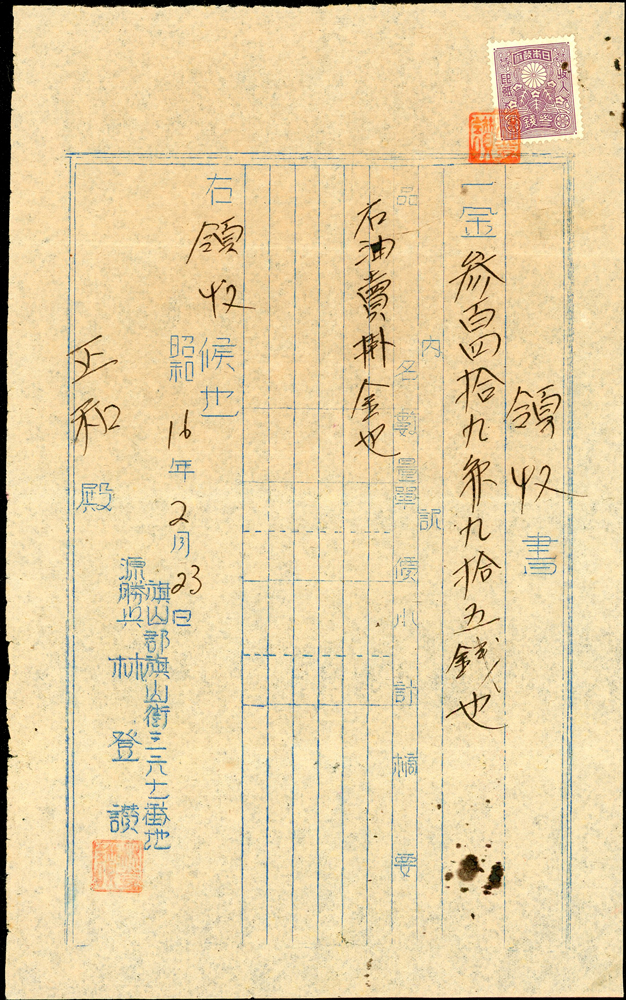 大日本政府
収入印紙
参銭
領收書
一金参百四拾九円九拾五銭也
內訳
品名數量單價小計摘要
石油賣掛金也
右領收候也
昭和16年2月23日
旗山郡旗山街三六七番地
源勝興 林登讃
正和殿